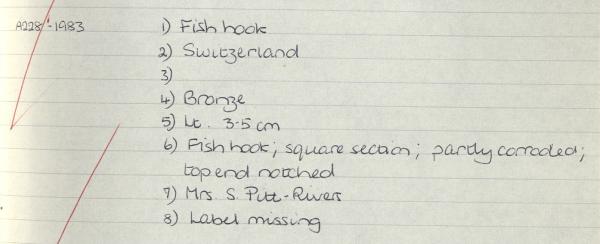 A228'-1983 1) Fish hook
2) Switzerland
3)
4) Bronze
5) Lt. 3.5 cm
6) Fish hook; square section; partly corroded;
top end notched
7) Mrs. S. Pitt-Rivers
8) Label missing